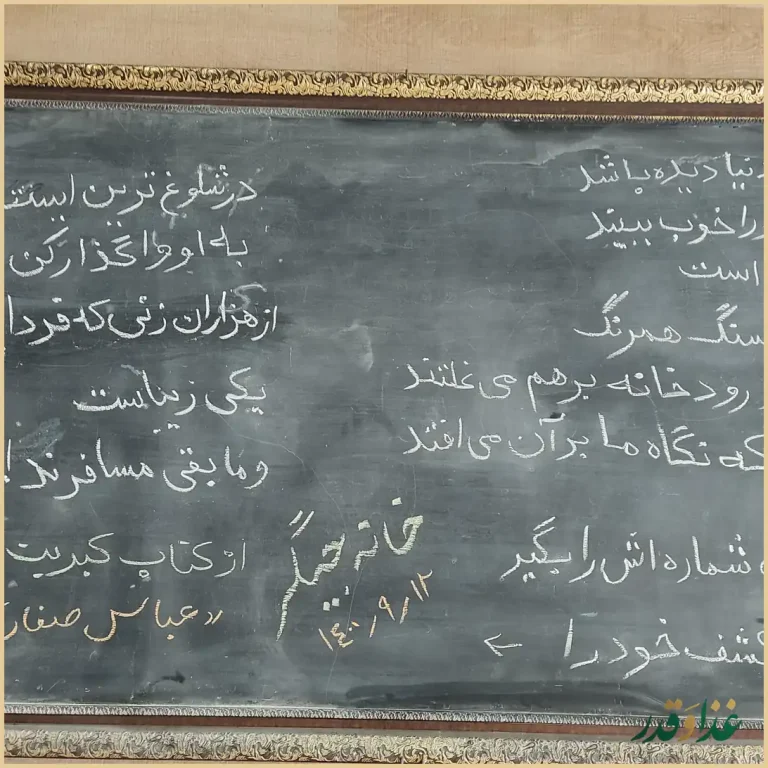 دنیا دیده باشد
را خوب ببیند
است
سنگ همرنگ
رودخانه برهم می‌غلتند
که نگاه ما بر آن می‌افتد
شماره‌اش را بگیر
کشف خود را ←
در شلوغ‌ترین ایست
به او واگذار کن
از هزاران زنی که فردا
یکی زیباست
و مابقی مسافرند!
از کتاب کبریت
«عباس صفار
خانه جیگر
۱۴۰۰/۹/۱۲
غذا و قدر